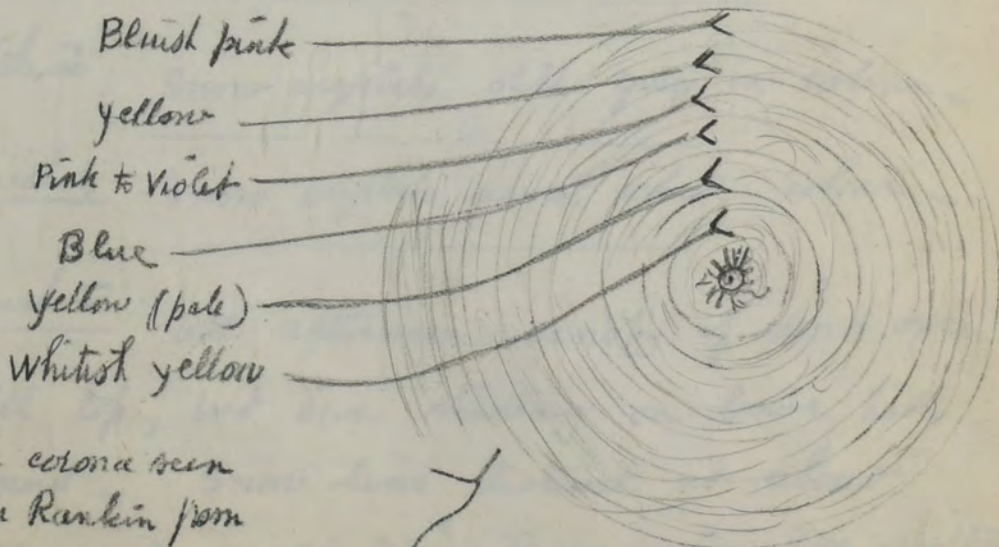 Bluish pink
yellow
Pink to Violet
Blue
yellow (pale)
Whitish yellow
corona seen
Rankin from